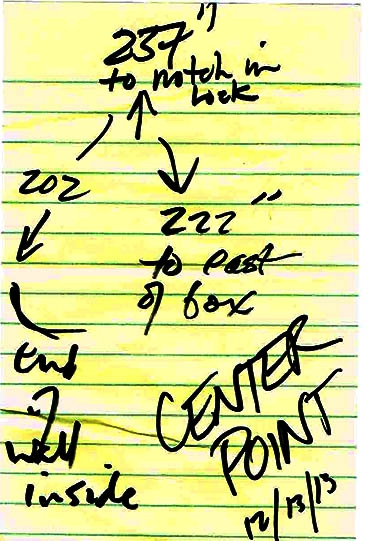 237"
to notch in
lock
202
222"
to east
of box
end
of
wall
inside
CENTER
POINT
12/13/13